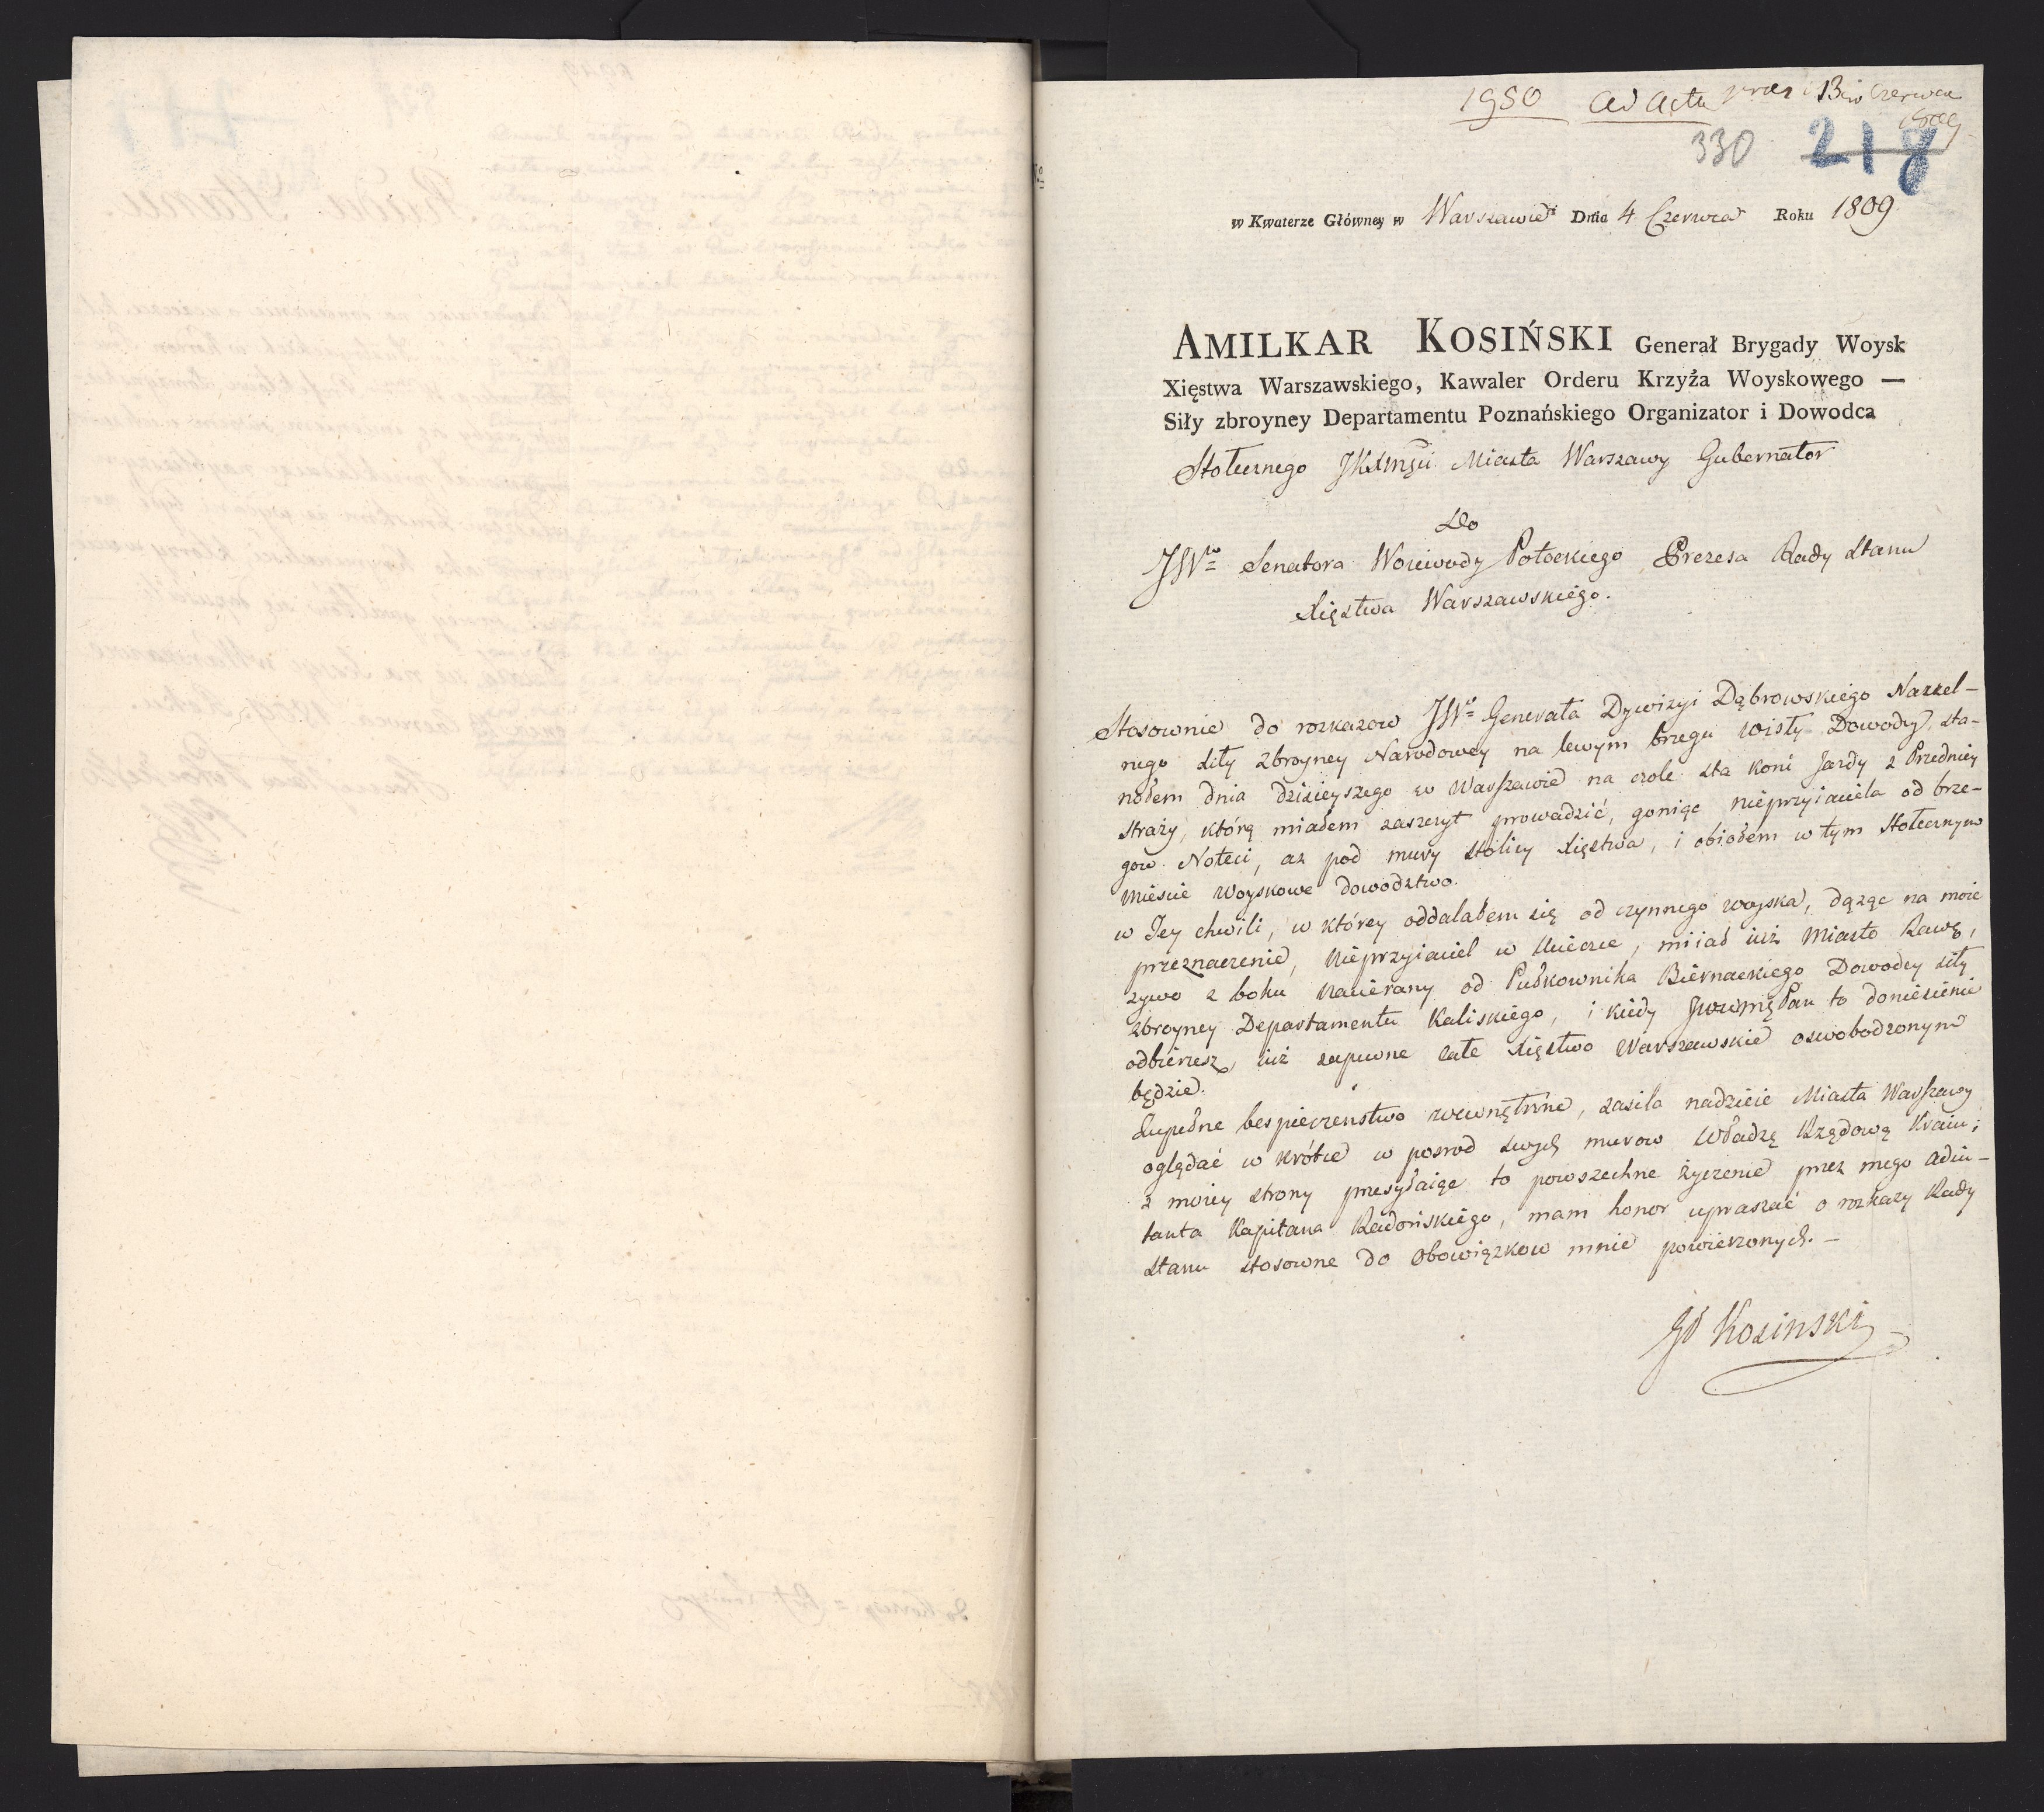 1950 ad acta praes 13 Czerwca
1809
330 218
w Kwaterze Główney w Warszawie Dnia 4 Czerwca Roku 1809
AMILKAR KOSIŃSKI Generał Brygady Woysk
Xięstwa Warszawskiego, Kawaler Orderu Krzyża Woyskowego —
Siły zbroyney Departamentu Poznańskiego Organizator i Dowodca
Stołecznego Miasta Warszawy Gubernator
Do
JWo Senatora Woiewody Potockiego Prezesa Rady Stanu
Xięstwa Warszawskiego.
Stosownie do rozkazow JWo Generała Dywizyi Dąbrowskiego Naczel-
nego siły zbroyney Narodowey na lewym brzegu Wisły Dowodcy, sta-
nołem dnia dzisieyszego w Warszawie na czole sta koni Jazdy z Przedniey
straży, którą miałem zaszczyt prowadzić, goniąc nieprzyiaciela od brze-
gow Noteci, aż pod mury stolicy Xięstwa, i obiołem w tym Stołecznym
mieście woyskowe dowodztwo.
w Tey chwili, w którey oddalałem się od czynnego woyska, dążąc na moie
przeznaczenie, nieprzyiaciel w ucieczce, miiał iuż Miasto Rawę,
żywo z boku nacierany od Pułkownika Biernackiego Dowodcy siły
zbroyney Departamentu Kaliskiego, i kiedy JWWMę Pan to doniesienie
odbierzesz, iuż zapewne całe Xięstwo Warszawskie oswobodzonym
będzie.
Zupełne bespieczenstwo wewnętrzne, zasila nadzieie Miasta Warszawy
oglądać w krótce w posrod swych murow Władzę Rządową Kraiu;
z moiey strony przesyłaiąc to powszechne życzenie przez mego adiu-
tanta Kapitana Radońskiego, mam honor upraszać o rozkazy Rady
Stanu stosowne do obowiązkow mnie powierzonych. —
Kosinski